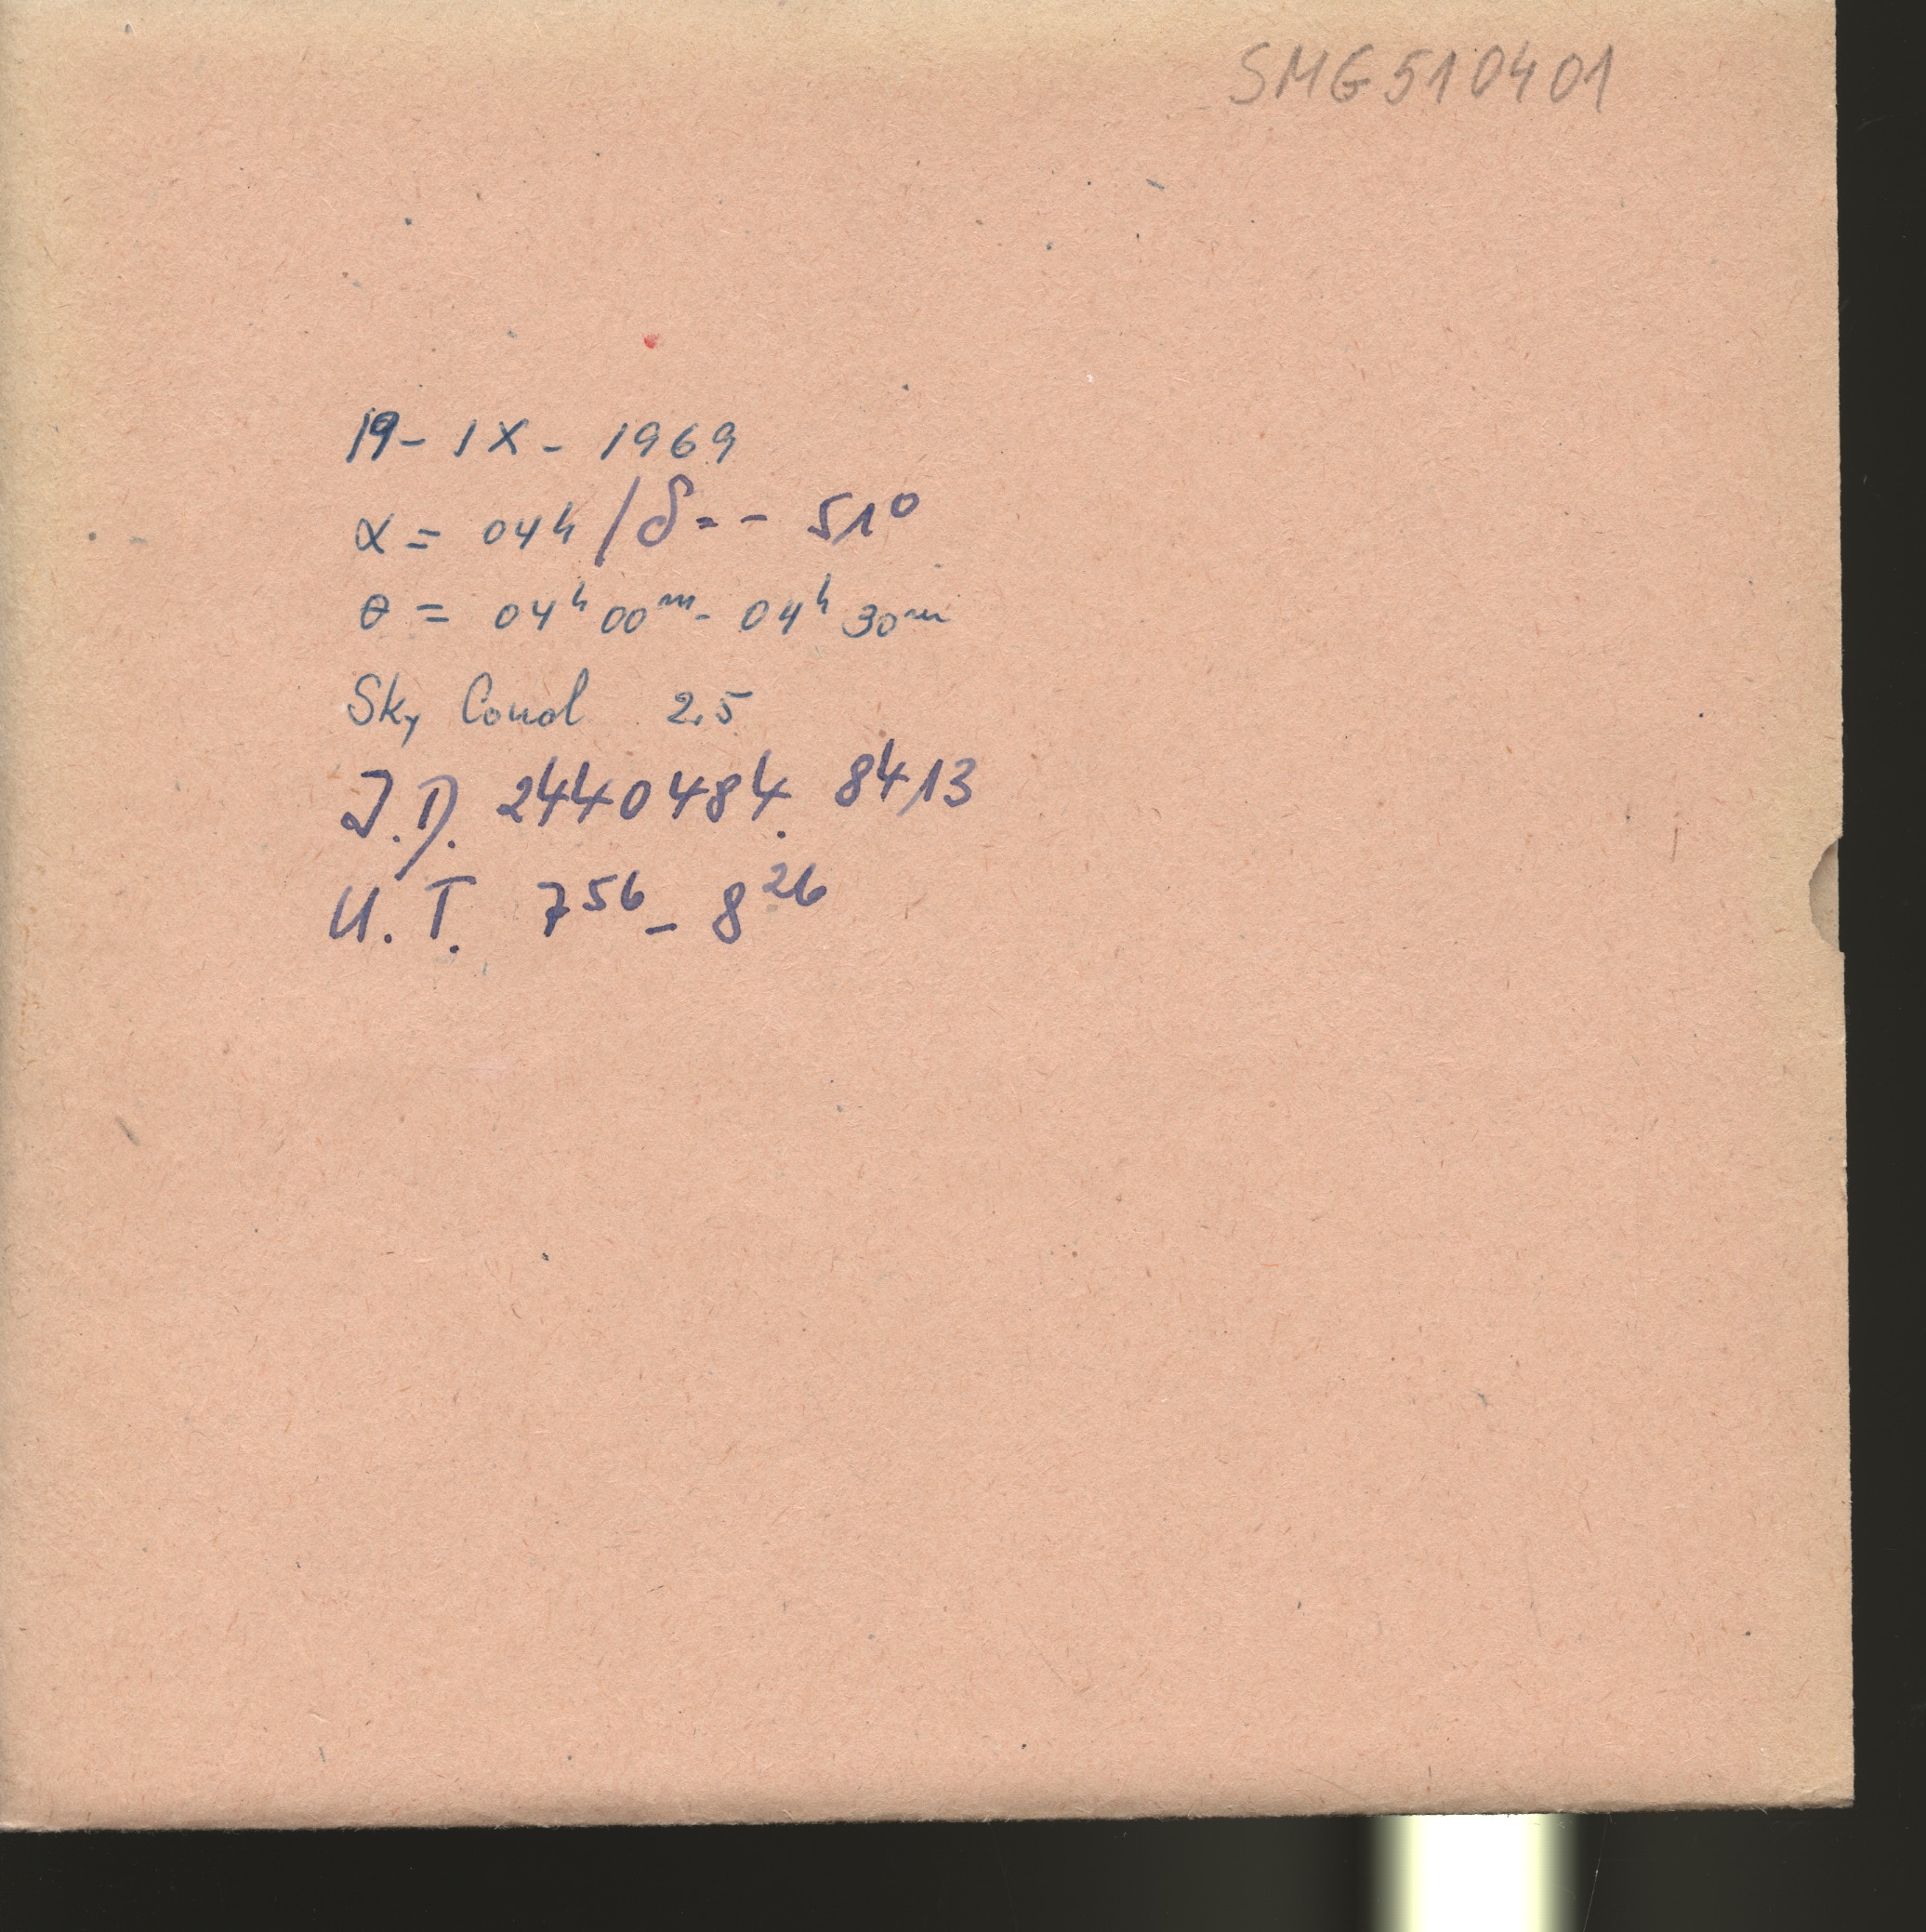 SMG510401
19- IX - 1969
α = 04h / δ = - 51°
θ = 04ʰ 00ᵐ - 04ʰ 30ᵐ
Sky Cond 2.5
J.D. 2440484. 8413
U.T. 7⁵⁶ - 8²⁶